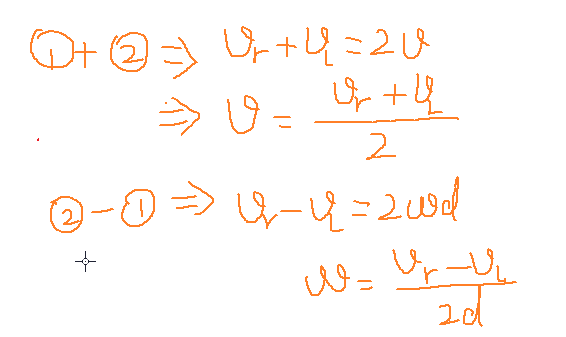 ① + ② ⇒ v_r + v_L = 2v
⇒ v = (v_r + v_L) / 2
② - ① ⇒ v_r - v_L = 2ωd
ω = (v_r - v_L) / 2d